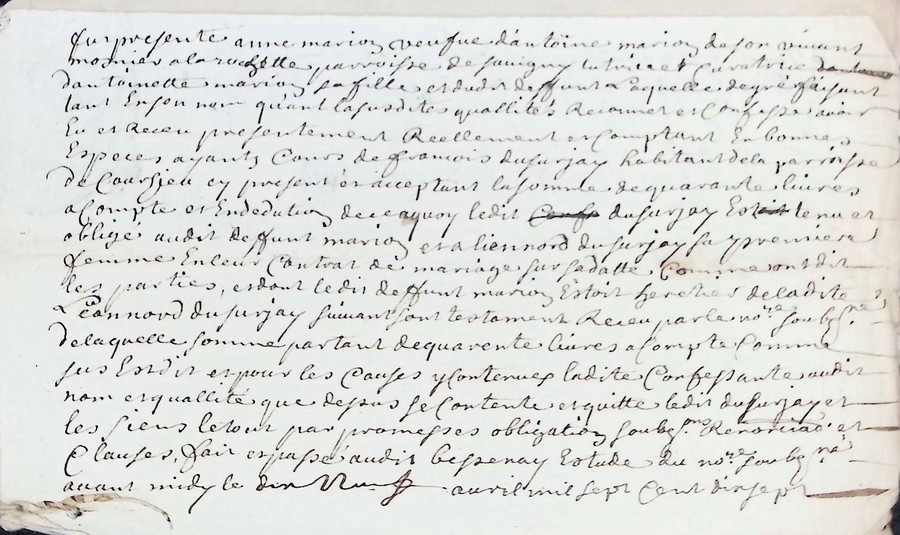 fut presente anne marion veufve d'antoine marion de son vivant
mosnier a la rochette parroisse de savigny tutrice et Curatrice
dantoinette marion sa fille et dudit deffunt Laquelle degré faisant
tant En son nom quant lasusdites quallités Reconnet et Confesse avoir
Eu et Receu presentement Reellement et Comptant En bonnes
Especes ayants Cours de francois dusurjay habitant dela parroisse
de Coursieu cy present et acceptant la somme de quarante livres
a Compte et En dedution de ce aquoy ledit dusurjay Estoit tenu et
obligé audit deffunt marion et a liennord dusurjay sa premiere
femme En leur Contrat de mariage sur sa datte Comme ont dit
les parties, et dont ledit deffunt marion Estoit heretier de ladite
Leannord dusurjay suivant sont testament Receu par le no.re soubz.né
de laquelle somme partant de quarente livres a Compte Comme
sus Est dit et pour les Causes y Contenues ladite Confessante audit
nom et quallité que dessus se Contente et quitte ledit dusurjay et
les siens le tout par promesses obligation soub.ons Renonciaõ et
Clauses, fait et passé audit bessenay Estude du no.re soubz.né
avant midy le dix Neuf avril mil sept Cent dix sept